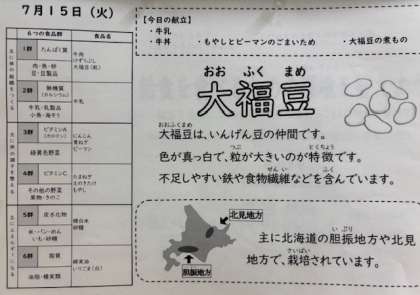 7月15日（火）
【今日の献立】
・牛乳
・牛丼　・もやしとピーマンのごまいため　・大福豆の煮もの
6つの食品群　食品名
1群　たんぱく質
肉・魚・卵
豆・豆製品
牛肉
大福豆(乾)
2群　無機質
(カルシウム)
牛乳・乳製品
小魚・海そう
牛乳
3群　ビタミンA
(カロテン)
緑黄色野菜
にんじん
青ねぎ
ピーマン
4群　ビタミンC
その他の野菜
果物・きのこ
たまねぎ
えのきたけ
もやし
5群　炭水化物
米・パン・めん
いも・砂糖
精白米
砂糖
6群　脂質
油脂・種実類
綿実油
いりごま(白)
おおふくまめ
大福豆
おおふくまめ
大福豆は、いんげん豆の仲間です。
つぶ　とくちょう
色が真っ白で、粒が大きいのが特徴です。
せんい　ふく
不足しやすい鉄や食物繊維などを含んでいます。
北見地方
胆振地方
いぶり
主に北海道の胆振地方や北見
さいばい
地方で、栽培されています。